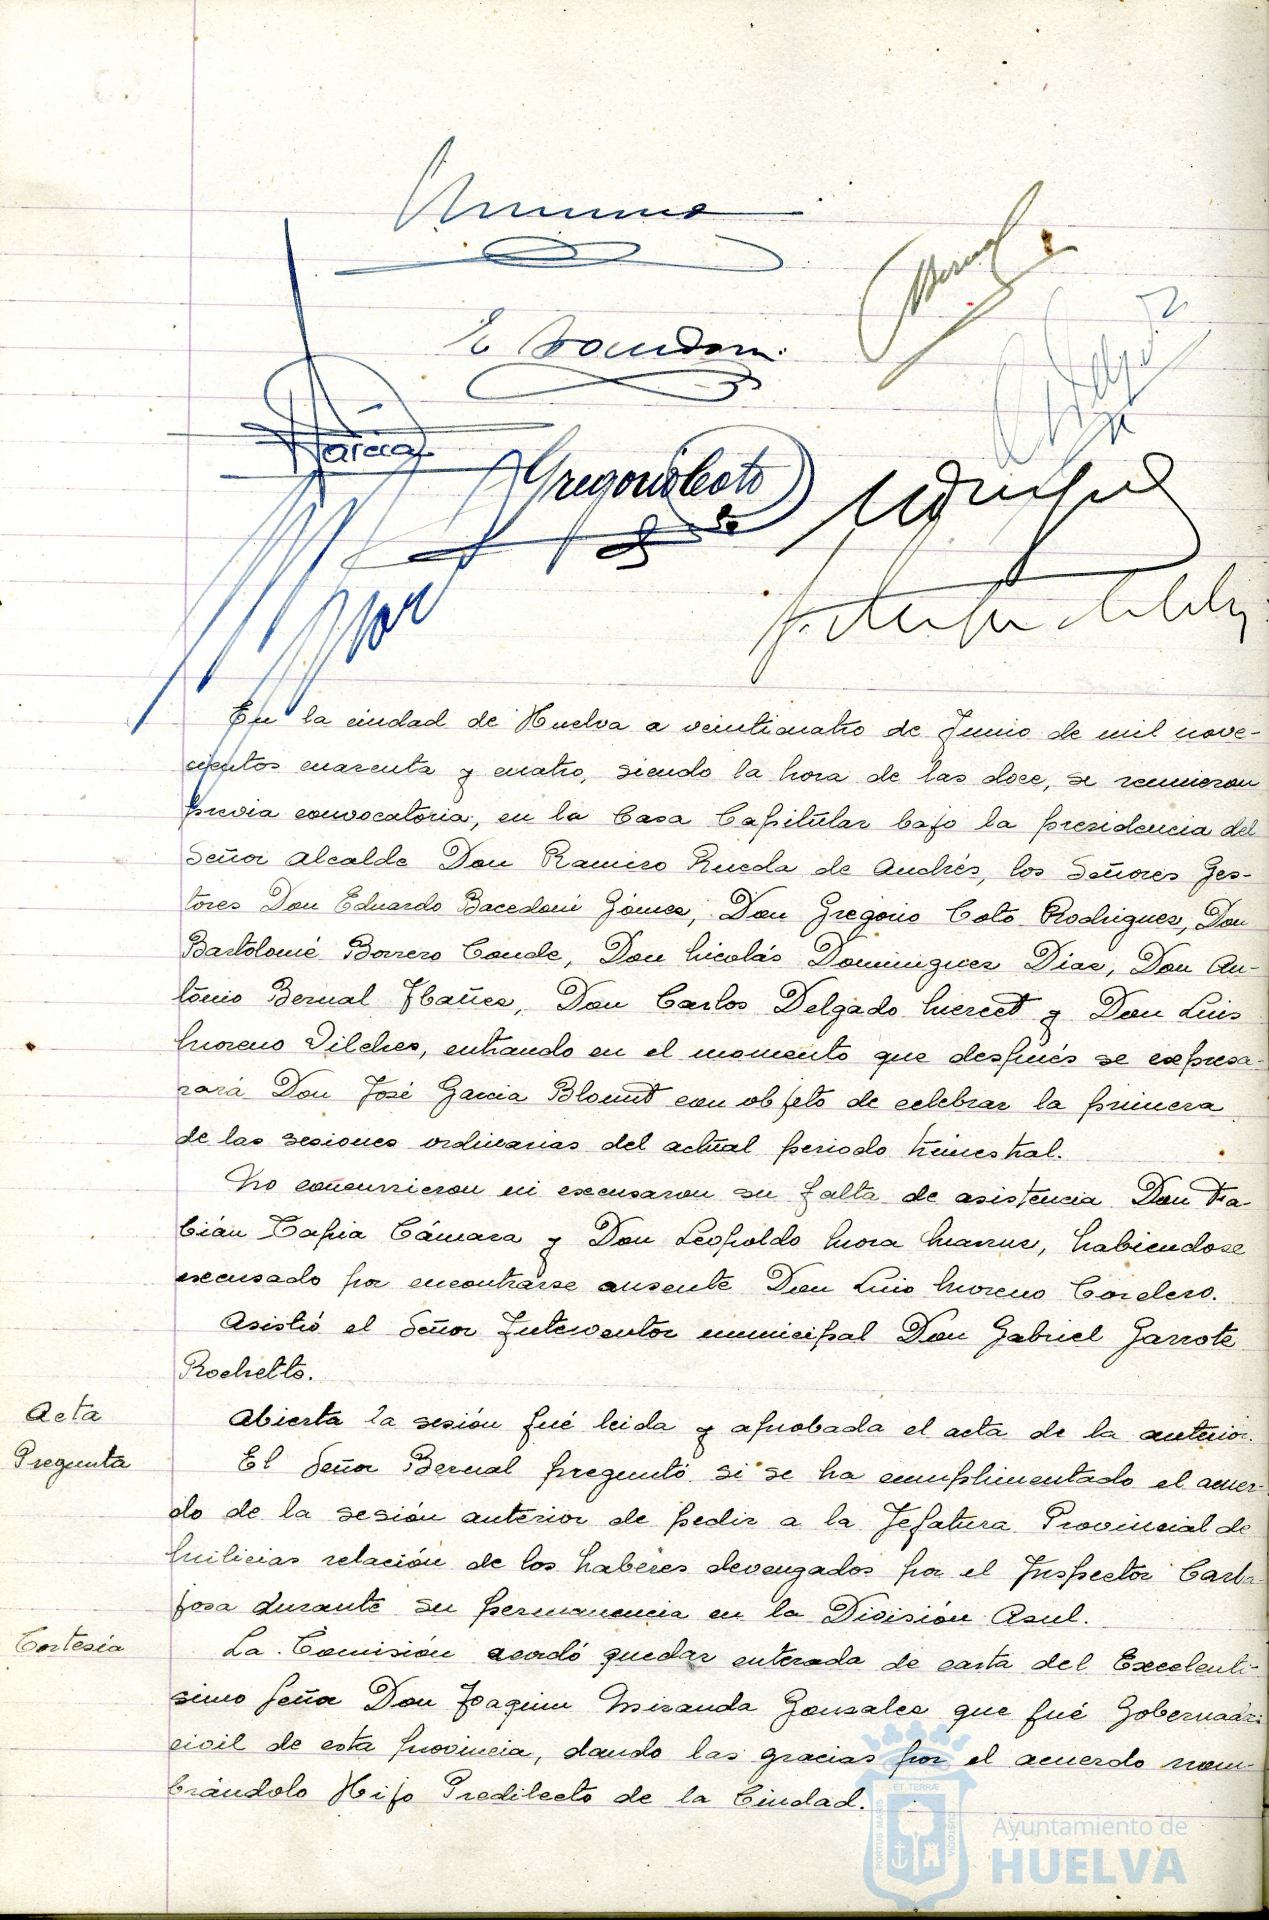 Bernal
García
Gregorio Coto
En la ciudad de Huelva a veinticuatro de Junio de mil nove-
cientos cuarenta y cuatro, siendo la hora de las doce, se reunieron
previa convocatoria, en la Casa Capitular bajo la presidencia del
Señor Alcalde Don Ramiro Rueda de Andrés, los Señores Ges-
tores Don Eduardo Bacedoni Gómez, Don Gregorio Coto Rodriguez, Don
Bartolomé Borrero Conde, Don Nicolás Dominguez Diaz, Don An-
tonio Bernal Ibañez, Don Carlos Delgado Miercet y Don Luis
Moreno Vilches, entrando en el momento que después se expresa-
rará Don José Garcia Blount con objeto de celebrar la primera
de las sesiones ordinarias del actual periodo trimestral.
No concurrieron ni excusaron su falta de asistencia Don Fa-
bián Tapia Cámara y Don Leopoldo Mora habiendose
excusado por encontrarse ausente Don Luis Moreno Cordero.
Asistió el Señor Interventor municipal Don Gabriel Garrote
Rochetto.
Acta
Abierta la sesión fué leida y aprobada el acta de la anterior.
Pregunta
El Señor Bernal preguntó si se ha cumplimentado el acuer-
do de la sesión anterior de pedir a la Jefatura Provincial de
Milicias relación de los haberes devengados por el Inspector Carba-
josa durante su permanencia en la División Azul.
Cortesía
La Comisión acordó quedar enterada de carta del Excelenti-
simo Señor Don Joaquin Miranda Gonzalez que fué Gobernador
civil de esta provincia, dando las gracias por el acuerdo nom-
brándolo Hijo Predilecto de la Ciudad.
ET TERRÆ
PORTUS MARIS
CUSTODIA
Ayuntamiento de
HUELVA